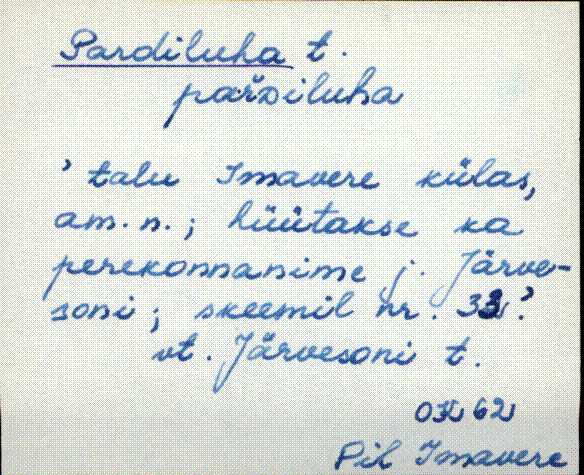 Pardiluha t.
par̆Diluha
' talu Imavere külas,
am. n.; hüütakse ka
perekonnanime j. Järve-
soni; skeemil nr. 33.'
vt. Järvesoni t.
62
Pil Imavere